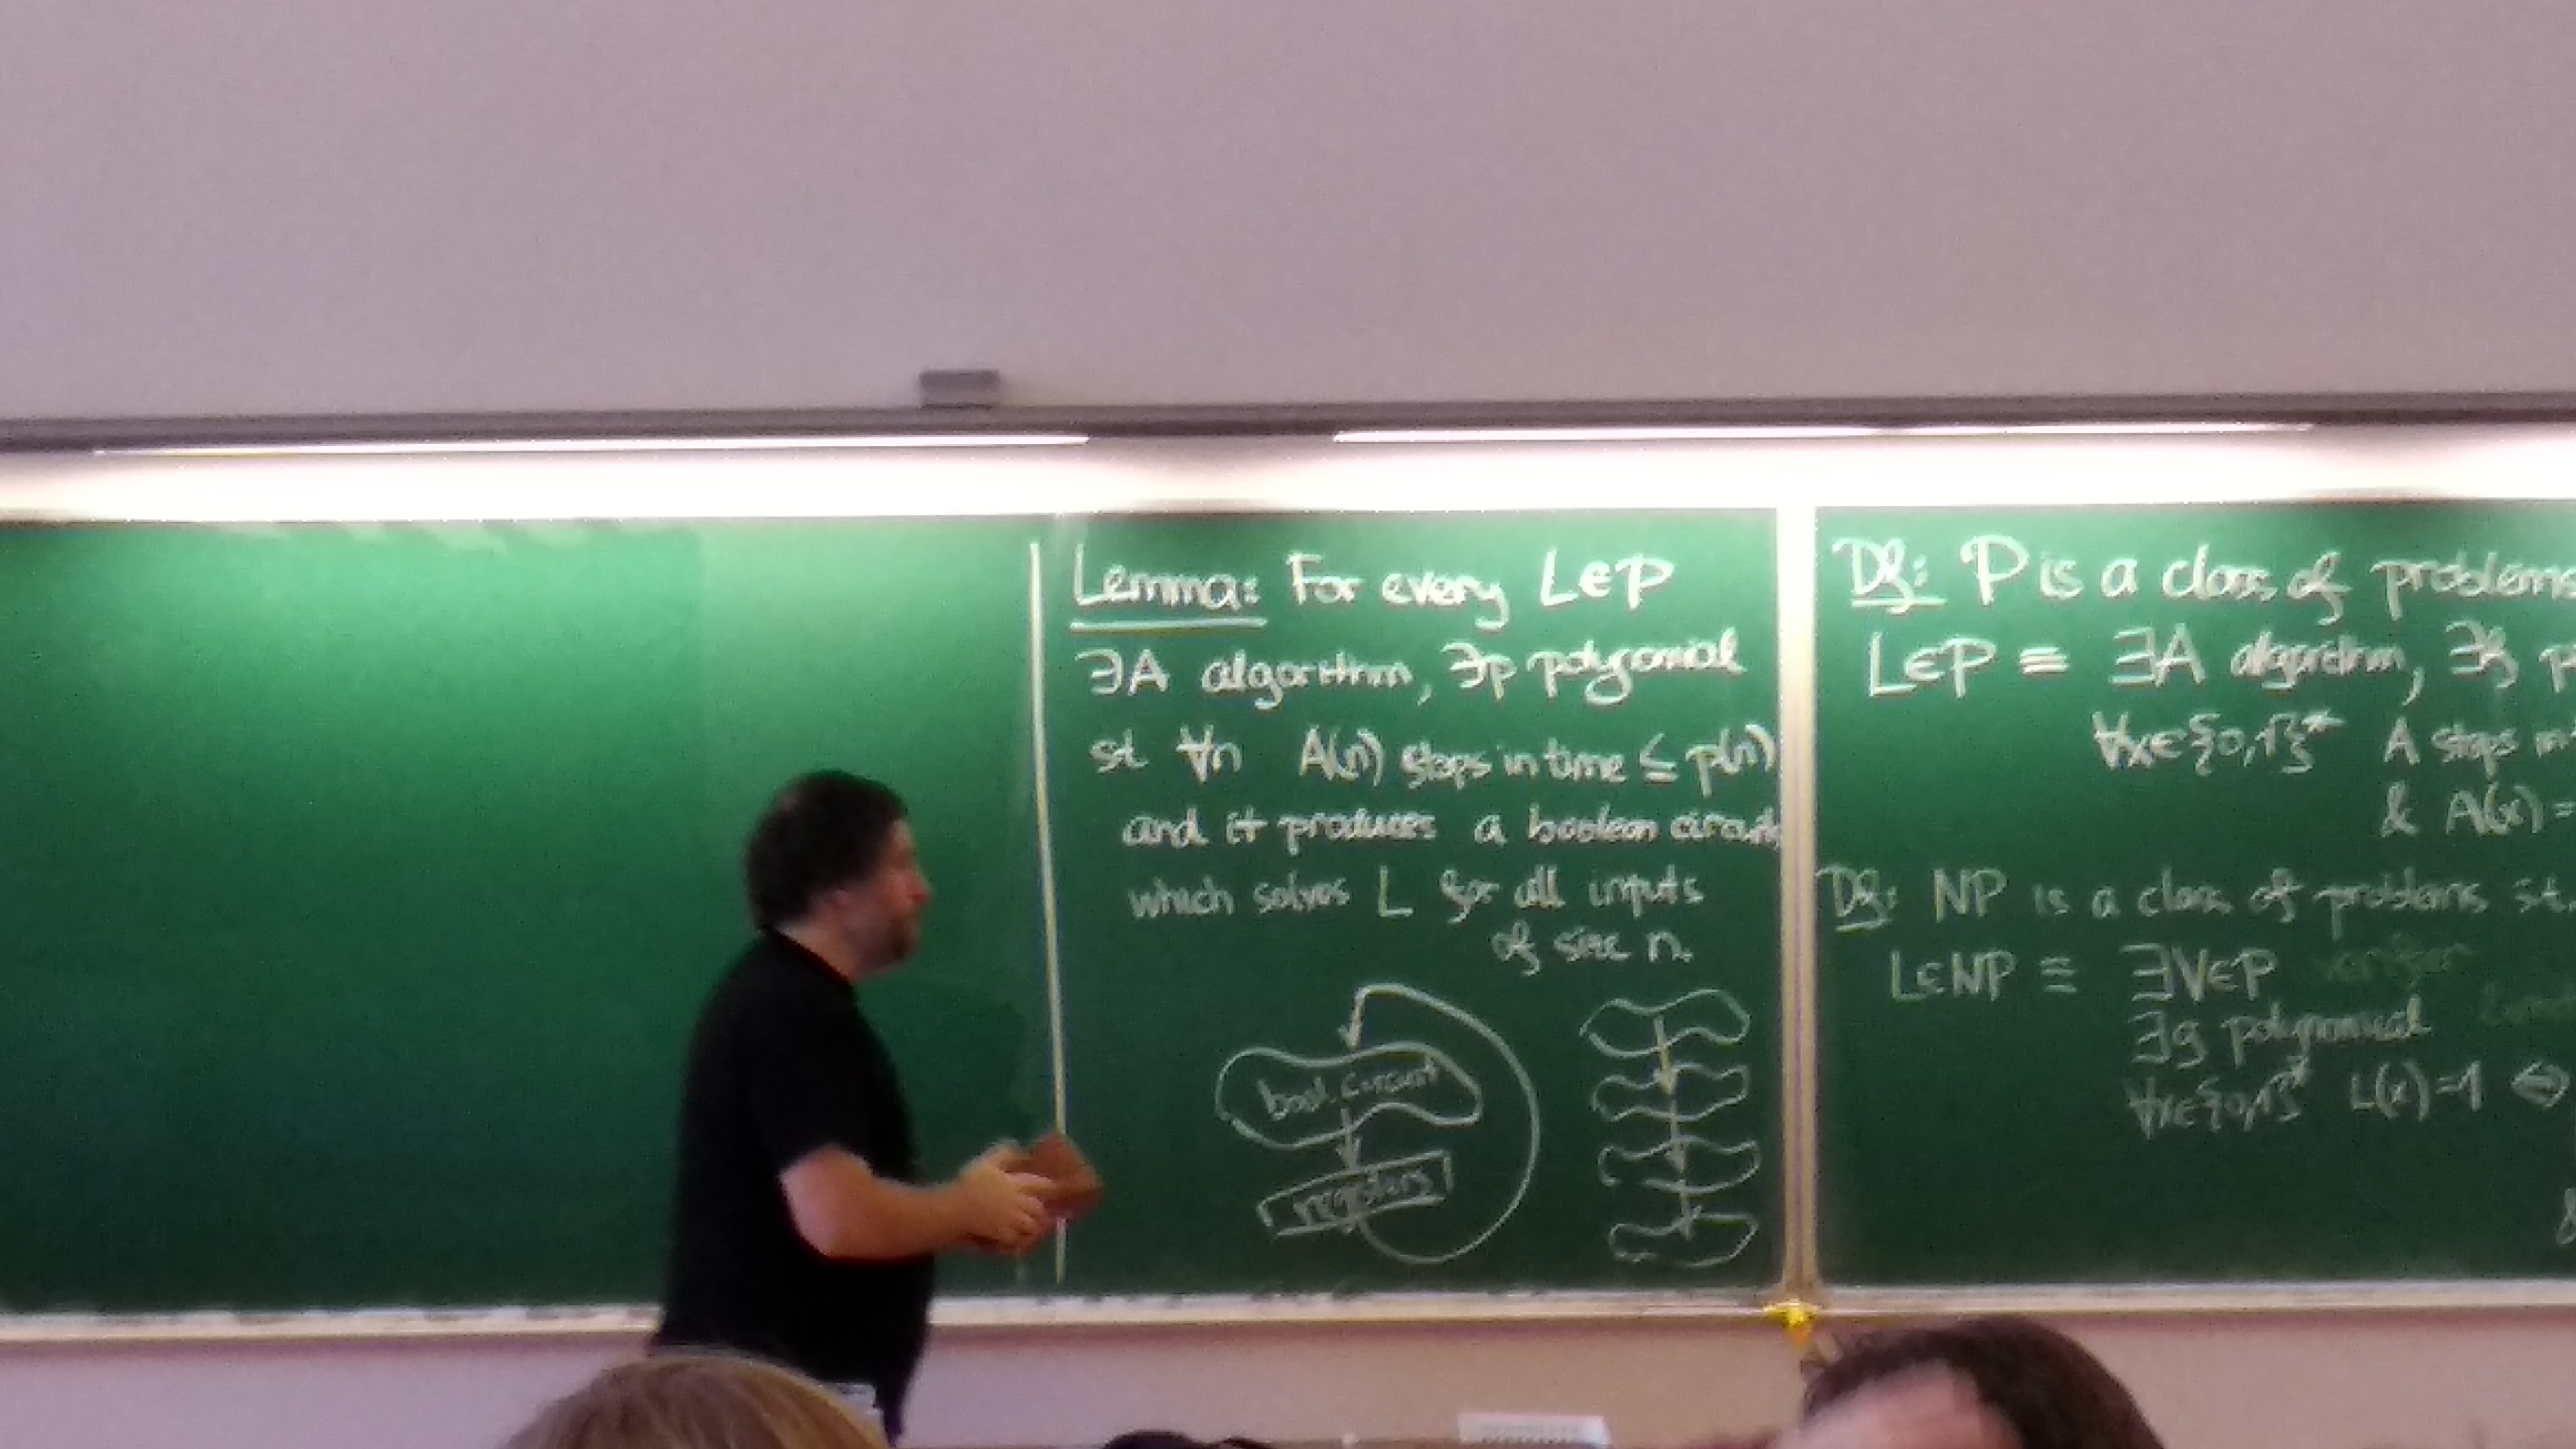 Lemma: For every L∈P
∃A algorithm, ∃p polynomial
st ∀n A(n) stops in time ≤ p(n)
and it produces a boolean circuit
which solves L for all inputs
of size n.
bool. circuit
registers
Df: P is a class of problems
L∈P ≡ ∃A algorithm, ∃g p
∀x∈{0,1}* A stops in
& A(x) =
Df: NP is a class of problems st.
L∈NP ≡ ∃V∈P verifier
∃g polynomial
∀x∈{0,1}* L(x)=1 ⇔